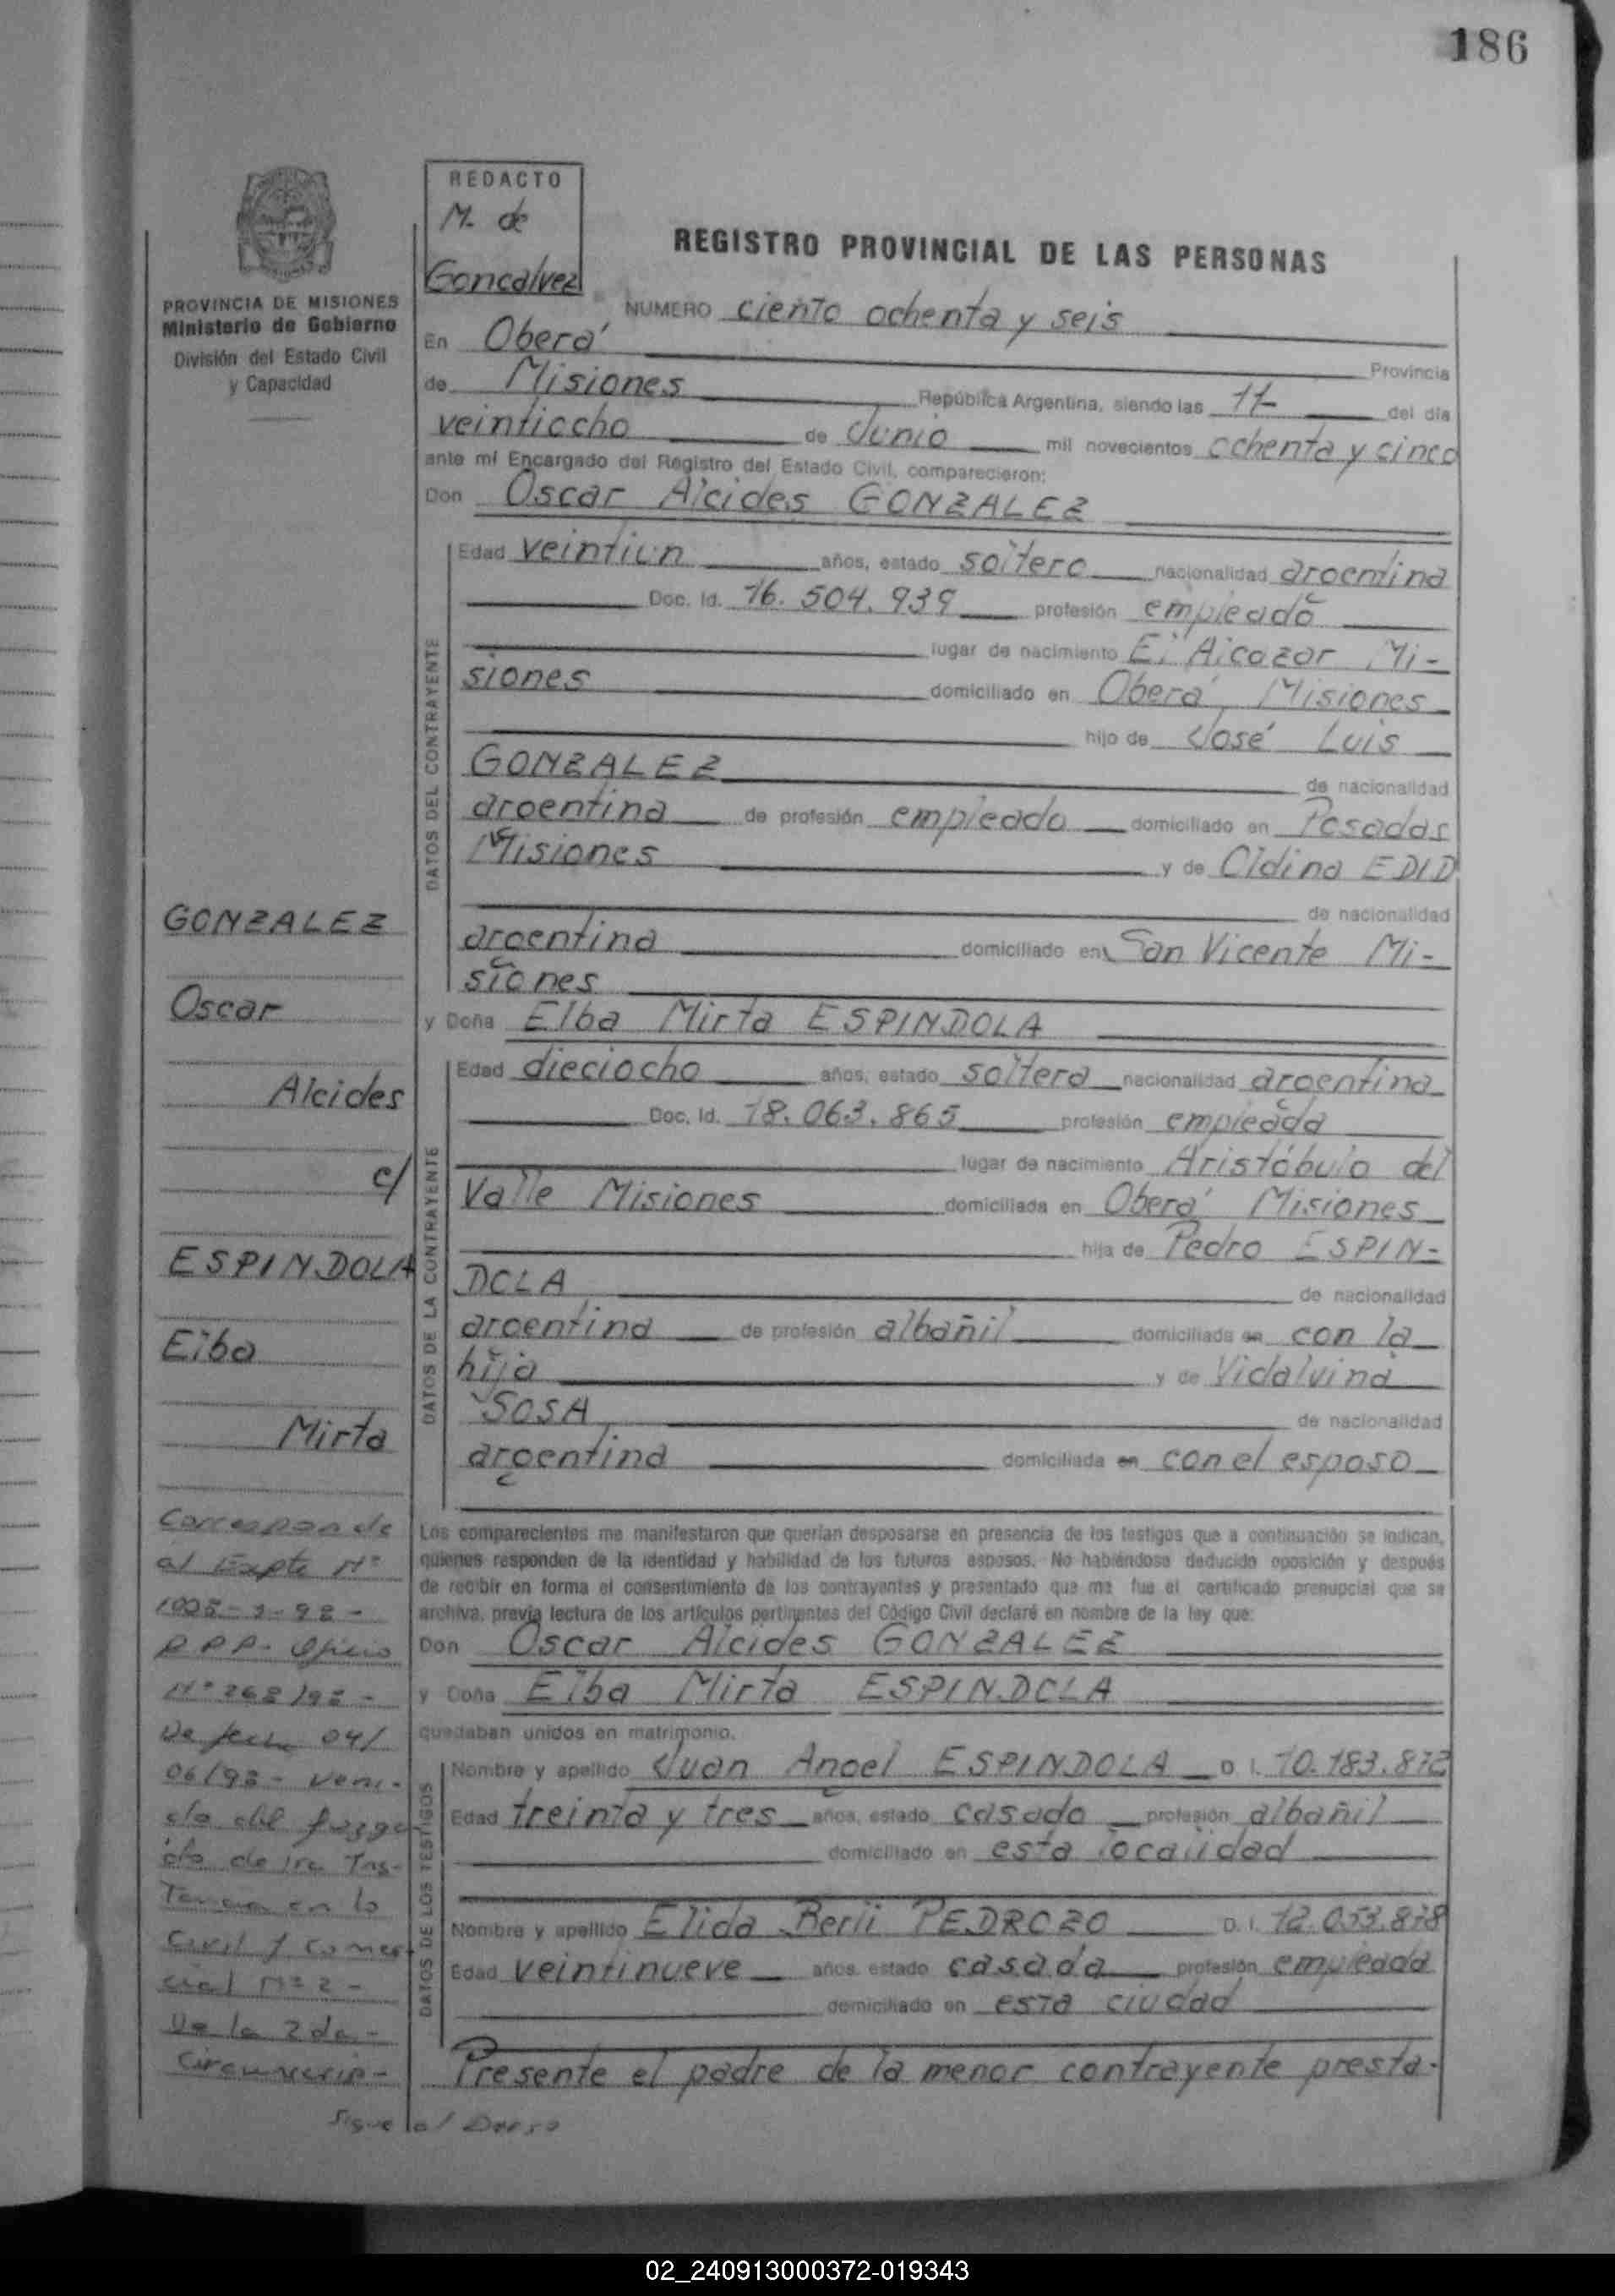 186
REDACTO
M. de
Goncalvez
PROVINCIA DE MISIONES
Ministerio de Gobierno
División del Estado Civil
y Capacidad
REGISTRO PROVINCIAL DE LAS PERSONAS
NUMERO ciento ochenta y seis
En Oberá Provincia
de Misiones República Argentina, siendo las 11- del día
veintiocho de Junio mil novecientos ochenta y cinco
ante mí Encargado del Registro del Estado Civil, comparecieron:
Don Oscar Alcides GONZALEZ
DATOS DEL CONTRAYENTE
Edad veintiun años, estado soltero nacionalidad argentina
Doc. Id. 16.504.939 profesión empleado
lugar de nacimiento El Alcazar Mi-
siones domiciliado en Oberá Misiones
hijo de José Luis
GONZALEZ de nacionalidad
argentina de profesión empleado domiciliado en Posadas
Misiones y de Oldina EDID
de nacionalidad
argentina domiciliado en San Vicente Mi-
siones
y Doña Elba Mirta ESPINDOLA
DATOS DE LA CONTRAYENTE
Edad dieciocho años, estado soltera nacionalidad argentina
Doc. Id. 18.063.865 profesión empleada
lugar de nacimiento Aristóbulo del
Valle Misiones domiciliada en Oberá Misiones
hija de Pedro ESPIN-
DOLA de nacionalidad
argentina de profesión albañil domiciliada en con la
hija y de Vidalvina
SOSA de nacionalidad
argentina domiciliada en con el esposo
Los comparecientes me manifestaron que querían desposarse en presencia de los testigos que a continuación se indican,
quienes responden de la identidad y habilidad de los futuros esposos. No habiéndose deducido oposición y después
de recibir en forma el consentimiento de los contrayentes y presentado que me fue el certificado prenupcial que se
archiva, previa lectura de los artículos pertinentes del Código Civil declaré en nombre de la ley que:
Don Oscar Alcides GONZALEZ
y Doña Elba Mirta ESPINDOLA
quedaban unidos en matrimonio.
DATOS DE LOS TESTIGOS
Nombre y apellido Juan Angel ESPINDOLA D. I. 10.183.872
Edad treinta y tres años, estado casado profesión albañil
domiciliado en esta localidad
Nombre y apellido Elida Berli PEDROZO D. I. 12.053.878
Edad veintinueve años, estado casada profesión empleada
domiciliado en esta ciudad
Presente el padre de la menor contrayente presta-
GONZALEZ
Oscar
Alcides
c/
ESPINDOLA
Elba
Mirta
Corresponde
al Expte Nº
R.P.P. Oficio
Nº 268/98-
De fecha 04/
06/98- veni-
do del Juzga
do de 1ra Ins-
Tancia en lo
Civil y Comer
cial Nº 2-
De la 2da-
Circunscrip-
Sigue al Dorso
02_240913000372-019343